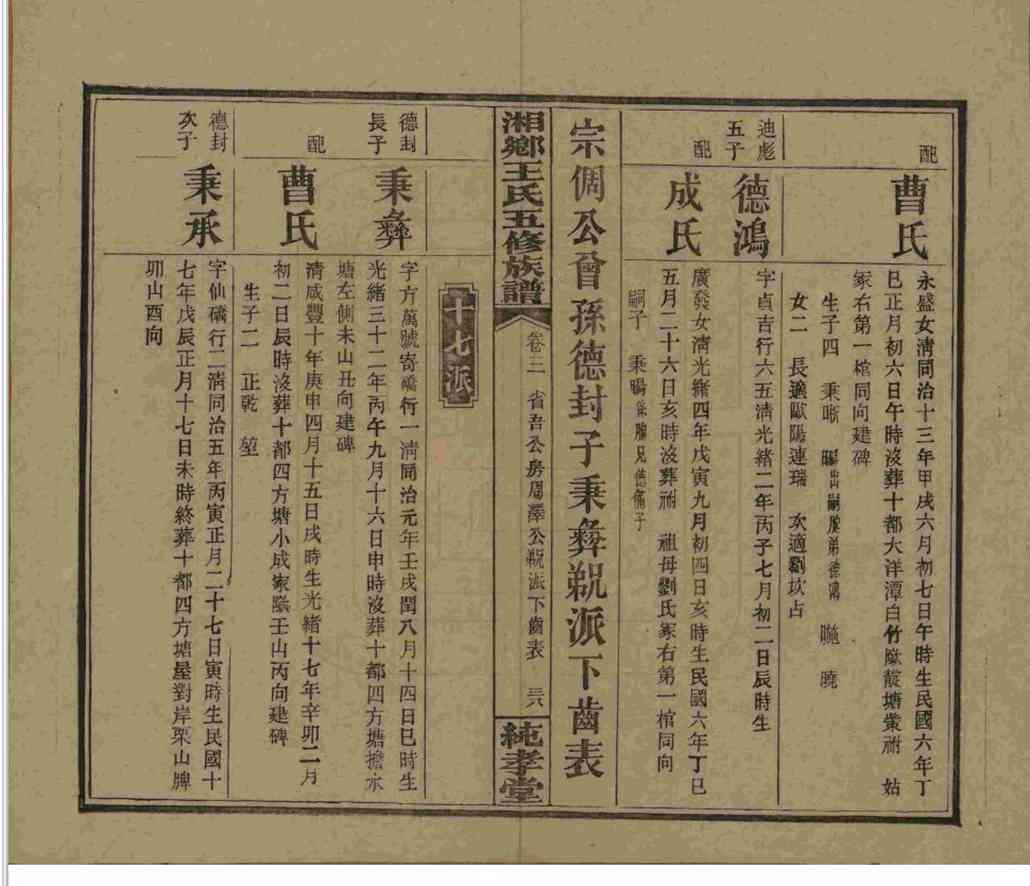 配
曹氏
永盛女清同治十三年甲戌六月初七日午時生民國六年丁
巳正月初六日午時沒葬十都大洋潭白竹 塘 祔 姑
冢右第一棺同向建碑
生子四 秉晰 暘出嗣胞弟德鴻 曉
女二 長適歐陽連瑞 次適劉 占
迪彪
五子
德鴻
字貞吉行六五清光緒二年丙子七月初二日辰時生
配
成氏
廣發女清光緒四年戊寅九月初四日亥時生民國六年丁巳
五月二十六日亥時沒葬祔 祖母劉氏冢右第一棺同向
嗣子 秉暘係胞兄德備子
宗倜公曾孫德封子秉彝 派下齒表
湘鄉王氏五修族譜
卷三 省吾公房周澤公 派下齒表 三八
純孝堂
十七派
德封
長子
秉彝
字方萬號寄 行一清同治元年壬戌閏八月十四日巳時生
光緒三十二年丙午九月十六日申時沒葬十都四方塘擔水
塘左側未山丑向建碑
配
曹氏
清咸豐十年庚申四月十五日戌時生光緒十七年辛卯二月
初二日辰時沒葬十都四方塘小成家陰壬山丙向建碑
生子二 正乾 堃
德封
次子
秉承
字仙 行二清同治五年丙寅正月二十七日寅時生民國十
七年戊辰正月十七日未時終葬十都四方塘屋對岸栗山牌
卯山酉向